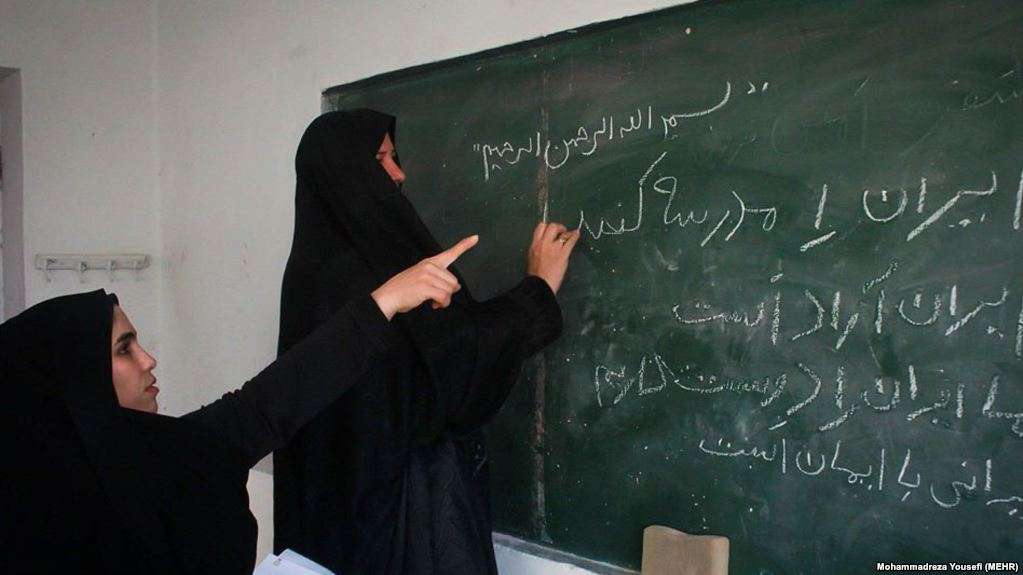 "بسم الله الرحمن الرحیم"
ایران را مدرسه کنید
ایران آزاد است
ایران را دوست دارم
ایرانی با ایمان است
Mohammadreza Yousefi (MEHR)